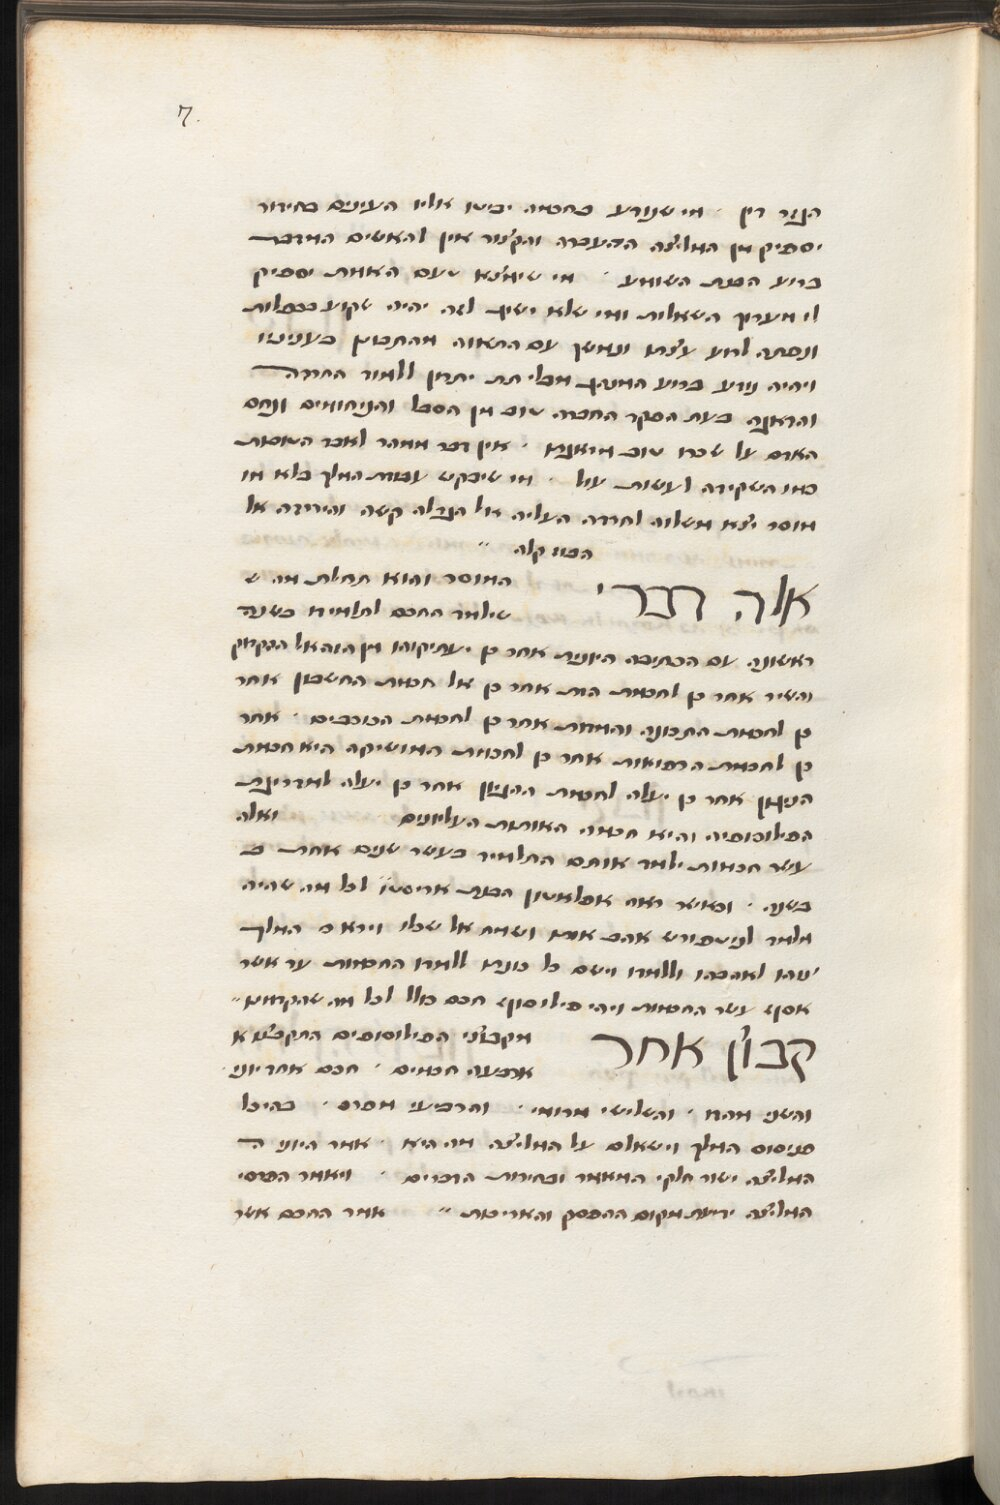 7.
הנזר דין · מי שנודע בחכמה יביטו אליו העינים בהידור
יספיק מן המליצה ההעברה והקצור אין להאשים המדבר
ברוע הבנת השומע · מי שימצא טעם האמת יספיק
לו מעריך השאלות ומי שלא ישיג לזה יהיה שקוע בכסלות
ונסתה לרוע עצתו ונמשך עם התאוה מהתבונן בענינו
ויהיה נודע ברוע המנהג מבלי תת יתרון ללמוד החרדה
והדאגה בעת הסקר החברה טוב מן הסבל והניחומים ונחם
האדם על שכרו טוב מיאנתו · אין דבר ממהר לאבד הטובות
כמו השקידה לעשות עול · מי שיבקש עבודת המלך בלא מו
מוסר יצא משלוה לחרדה העליה אל הגדולה קשה והירידה אל
הבוז קלה
אלה דברי המוסר והוא תחלת מה ש
שילמד החכם לתלמידו בשנה
ראשונה עם הכתיבה היונית אחר כן יעתיקוהו מן הזה אל הדקדוק
והשיר אחר כן לחכמת הדת אחר כן אל חכמת החשבון אחר
כן לחכמת התכונה והמדות אחר כן לחכמת הכוכבים · אחר
כן לחכמת הרפואות אחר כן לחכמת המושיקה היא חכמת
הניגון אחר כן יעלה לחכמת ההגיון אחר כן יעלה למדרגת
הפילוסופיה והיא חכמה האותות העליונים ואלה
עשר חכמות ילמד אותם התלמיד בעשר שנים אחת ב
בשנה · וכאשר ראה אפלאטון הבנת אריסטו לכל מה שהיה
מלמד לניטפורש אהב אותו ושמח אל שכלו וירא כי המלך
יצוהו לאהבהו וללמדו וישם כל כונתו ללמדו החכמות עד אשר
אסף עשר החכמות ויהי פילוסוף חכם כולל לכל מה שהקדמנו
קבוץ אחר מקבוצי הפילוסופים התקבצו א
ארבעה חכמים · חכם אחד יוני ·
והשני מהודו · והשלישי מרומי · והרביעי מפרס · בהיכל
פניסוס המלך וישאלם על המליצה מה היא · אמר היוני ה
המליצה ישור חלקי המאמר ובחירות הדברים · ויאמר הפרסי
המליצה ידיעת מקום ההפסק והאריכות · אמר החכם אשר